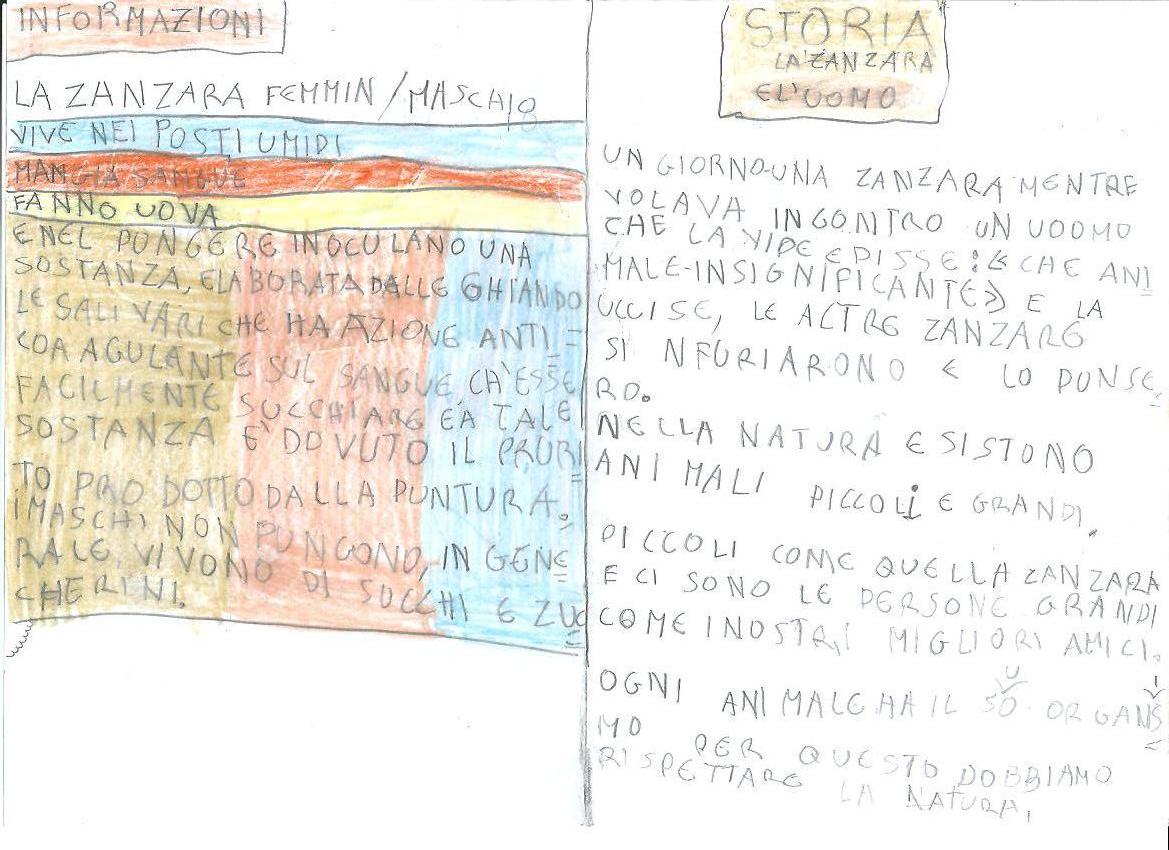 INFORMAZIONI
LA ZANZARA FEMMIN/MASCHIO
VIVE NEI POSTI UMIDI
MANGIA SANGUE
FANNO UOVA
E NEL PUNGERE INOCULANO UNA
SOSTANZA, ELABORATA DALLE GHIANDO
LE SALIVARI CHE HA AZIONE ANTI=
COAAGULANTE SUL SANGUE, CH'ESSE
FACILMENTE SUCCHIARE E A TALE
SOSTANZA E' DOVUTO IL PRURI=
TO PRODOTTO DALLA PUNTURA.
I MASCHI NON PUNGONO, IN GENE=
RALE VIVONO DI SUCCHI E ZUC=
CHERINI.
STORIA
LA ZANZARA
E L'UOMO
UN GIORNO UNA ZANZARA MENTRE
VOLAVA INCONTRO UN UOOMO
CHE LA VIDE E DISSE: «CHE ANI=
MALE-INSIGNIFICANTE» E LA
UCCISE, LE ALTRE ZANZARE
SI NFURIARONO E LO PUNSE=
RO.
NELLA NATURA ESISTONO
ANIMALI PICCOLI E GRANDI.
PICCOLI COME QUELLA ZANZARA
E CI SONO LE PERSONE GRANDI
COME I NOSTRI MIGLIORI AMICI.
OGNI ANIMALE HA IL SUO ORGANIS=
MO PER QUESTO DOBBIAMO
RISPETTARE LA NATURA.